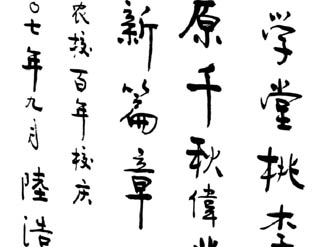 学堂桃李
原千秋偉業
新篇章
农校百年校庆
〇七年九月 陸浩